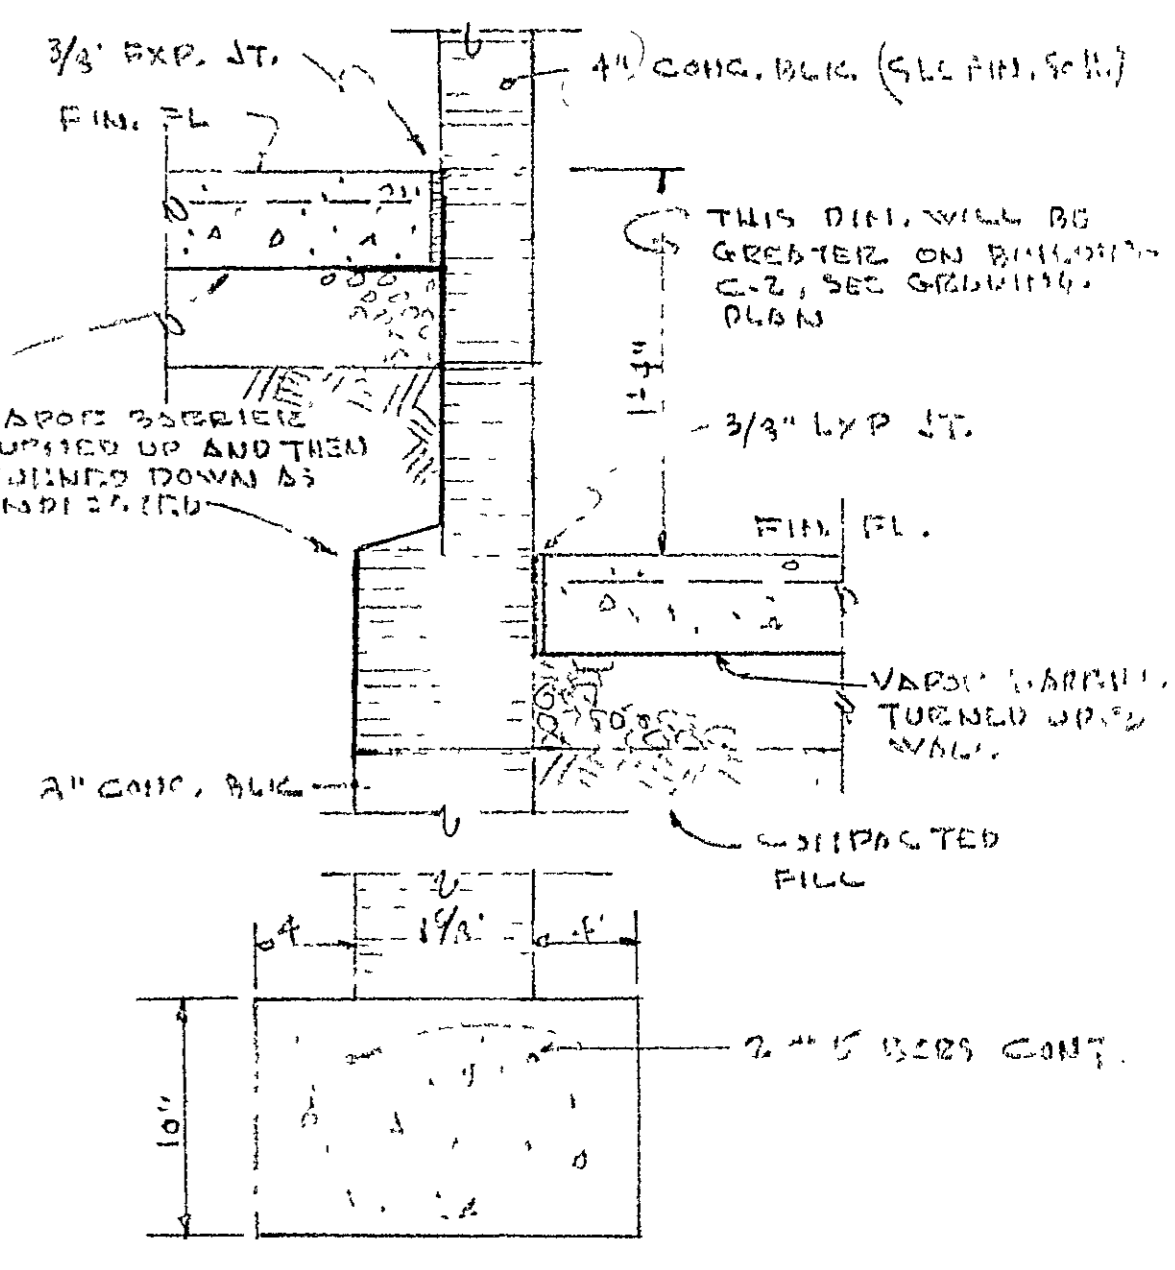 3/8" EXP. JT.
4" CONC. BLK. (SEE FIN. SCH.)
FIN. FL
THIS DIM. WILL BE
GREATER ON BUILDING
C-2, SEE GRADING
PLAN
3/8" EXP JT.
VAPOR BARRIER
TURNED UP AND THEN
TURNED DOWN AS
INDICATED
FIN. FL.
VAPOR BARRIER
TURNED UP
WALL.
CONC. BLK
COMPACTED
FILL
4
4"
2 #5 BARS CONT.
10"